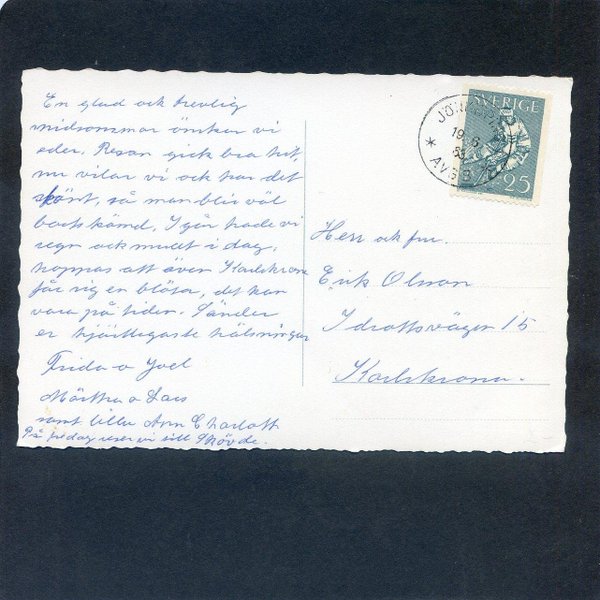 En glad och trevlig
midsommar önskar vi
eder. Resan gick bra hit,
nu vilar vi och har det
skönt, så man blir väl
bortskämd, I går hade vi
regn och mulet i dag,
hoppas att även Karlskrona
får sig en blöta, det kan
vara på tiden. Sänder
er hjärtligaste hälsningar
Frida o Joel
Märtha o Lars
samt lilla Ann Charlott
På fredag reser vi till Skövde.
SVERIGE
25
19. 6.
AVG
Herr och fru.
Erik Olsson
Idrottsvägen 15
Karlskrona.